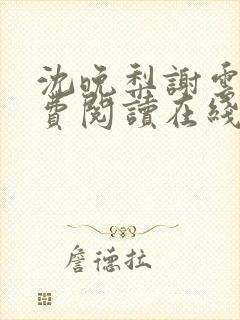 沈晚梨謝雲
費閱讀在綫
詹德拉